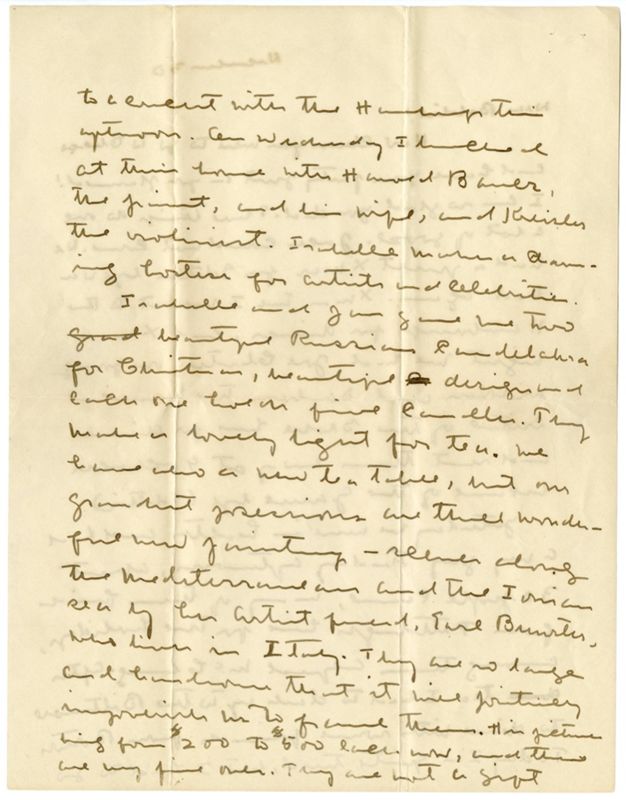 to a concert with the Hastings this
afternoon. On Wednesday I lunched
at their home with Harold Bauer,
the pianist, and his wife, and Kreisler
the violinist. Isabelle makes a charm-
ing hostess for artists and celebrities.
Isabelle and gave me two
beautiful Russian Candelabra
for Christmas, beautiful design and
each one holds five candles. They
make a lovely light for tea. We
have also a new tea table, but our
grandest posessions are three wonder-
ful new paintings – scenes along
the Mediterranean and the Ionian
sea by his artist friend, Earl Brewster,
who lives in Italy. They are so large
and handsome that it will positively
impoverish us to frame them. His pictures
bring from $200 to $500 each now, and these
are very fine ones. They are not a gift